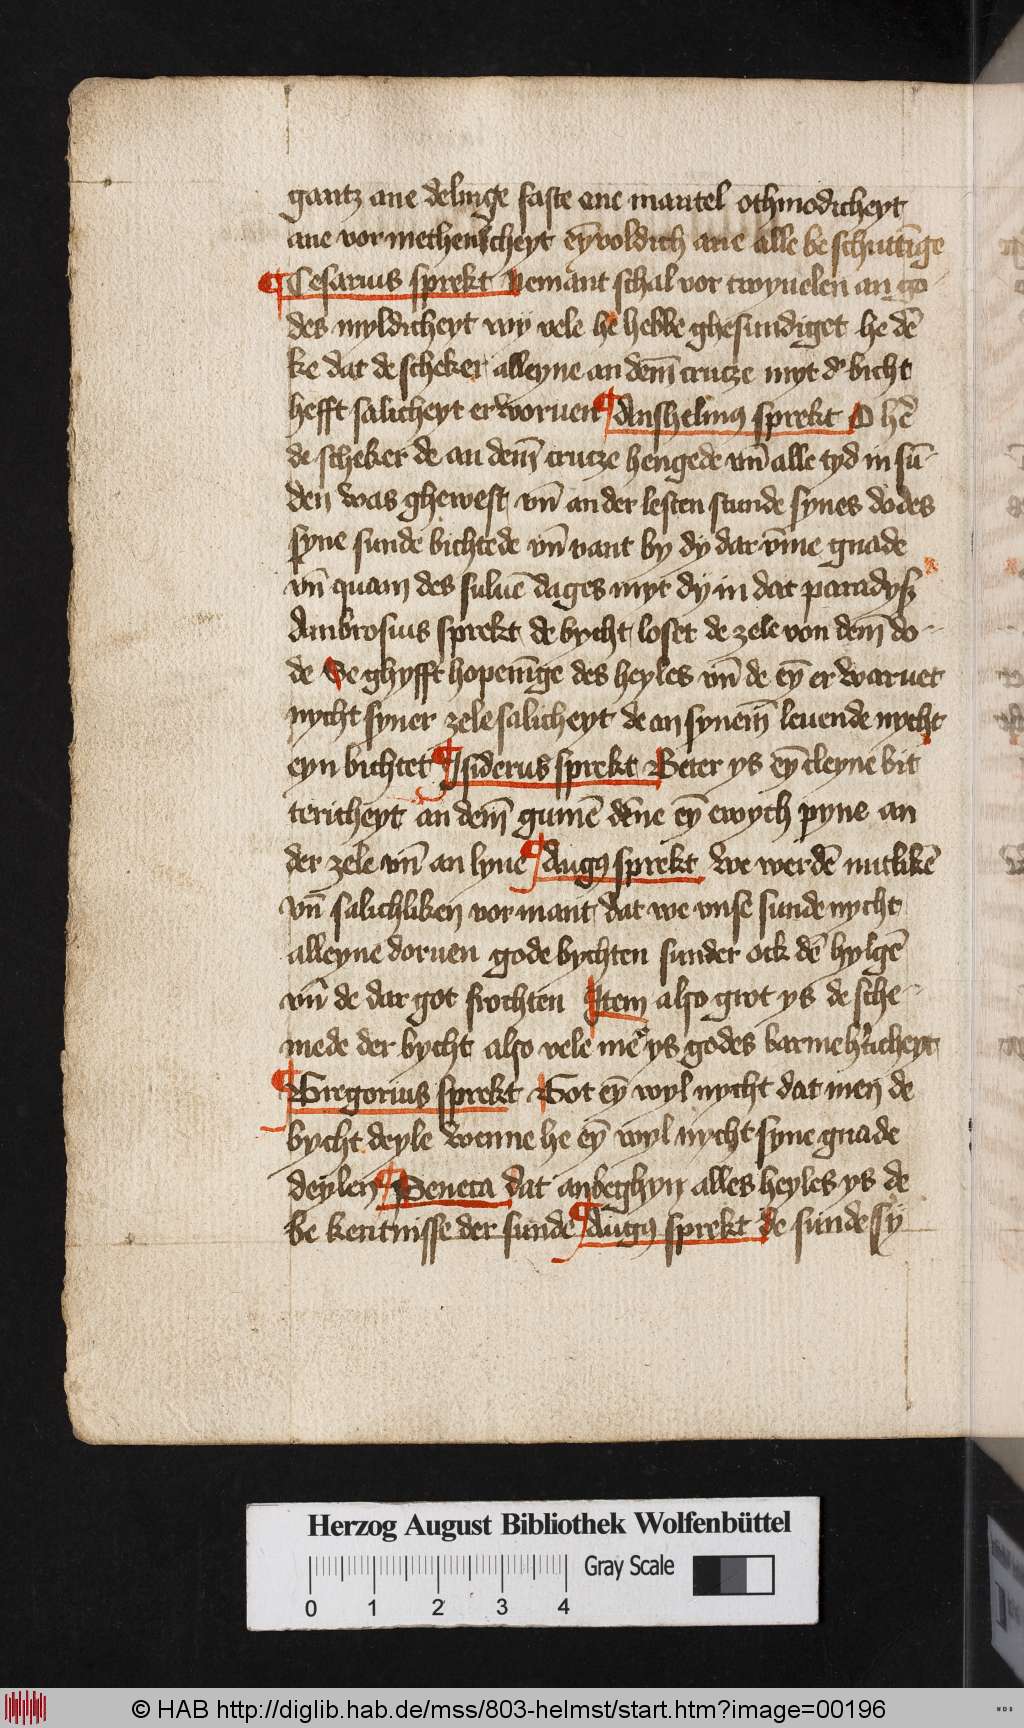 gantz ane delinge faste ane mantel othmodicheyt
ane vormethenscheyt eȳvoldich ane alle beschuttīge
¶ Cesarius sprekt Nemant schal vor twyuelen an go
des myldicheyt wy vele he hebbe ghesundiget he dē
ke dat de scheker alleyne an dem̄ crucze myt dʾ bicht
hefft salicheyt erworuen ¶ Anshelmꝰ sprekt O hē
de scheker de an dem̄ crucze hengede vn̄ alle tyd in sū-
den was ghewest vn̄ an der lesten stunde synes dodes
syne sunde bichtede vn̄ vant by dy dar v̄me gnade
vn̄ quam des suluē dages myt dy in dat paradyß
Ambrosius sprekt de bycht loset de zele von dem̄ do-
de Se ghyfft hopenīge des heyles vn̄ de eȳ erwaruet
nycht syner zele salicheyt de an synem̄ leuende nycht
eyn bichtet ¶ Isiderus sprekt Beter ys eȳ cleyne bit
tericheyt an dem̄ gumē dēne eȳ ewych pyne an
der zele vn̄ an lyue ¶ Augꝰ sprekt We werdē nutlikē
vn̄ salichliken vormant dat we vnse sunde nycht
alleyne doruen gode bychten sunder ock dē hylgē
vn̄ de dar got frochten Item also grot ys de sche-
mede der bycht also vele mēʾ ys godes barmehʾticheyt
¶ Gregorius sprekt Got eȳ wyl nycht dat men de
bycht deyle wenne he eȳ wyl nycht syne gnade
deylen ¶ Seneca dat anbeghyn alles heyles ys de
be kentnisse der sunde ¶ Augꝰ sprekt de sunde sy
Herzog August Bibliothek Wolfenbüttel
Gray Scale
0 1 2 3 4
© HAB http://diglib.hab.de/mss/803-helmst/start.htm?image=00196